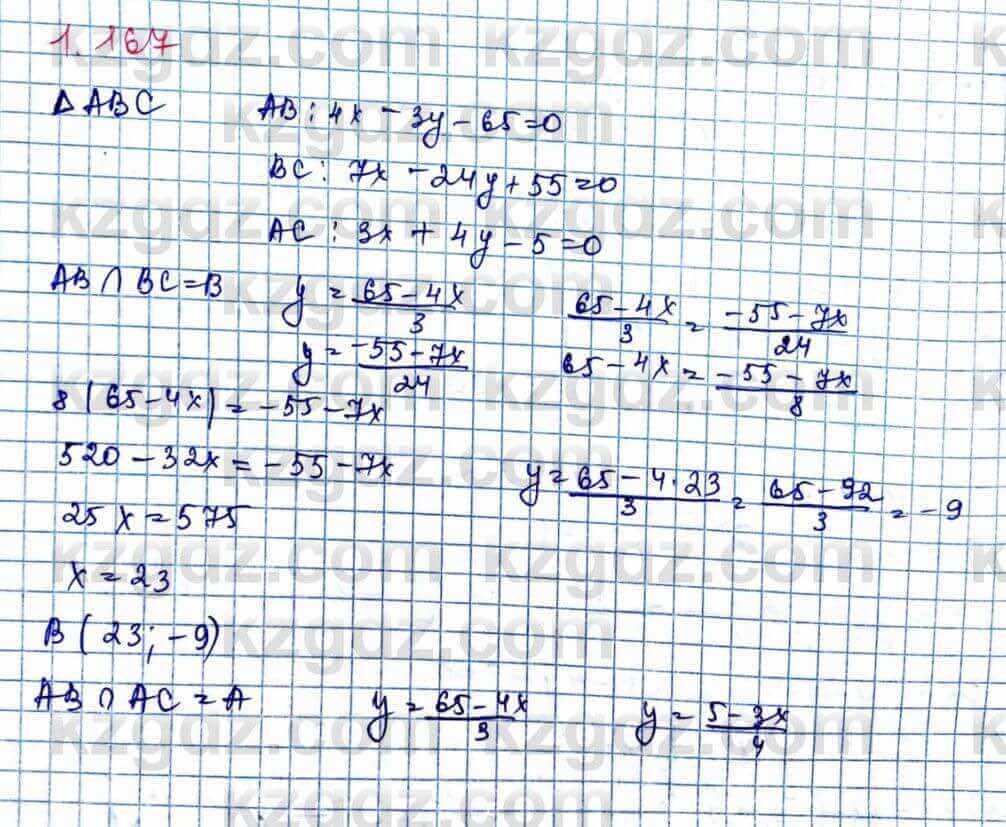 1.167
Δ ABC AB: 4x - 3y - 65 = 0
BC: 7x - 24y + 55 = 0
AC: 3x + 4y - 5 = 0
AB ∩ BC = B y = (65 - 4x)/3 (65 - 4x)/3 = (-55 - 7x)/24
y = (-55 - 7x)/24 65 - 4x = (-55 - 7x)/8
8(65 - 4x) = -55 - 7x
520 - 32x = -55 - 7x y = (65 - 4·23)/3 = (65 - 92)/3 = -9
25x = 575
x = 23
B(23; -9)
AB ∩ AC = A y = (65 - 4x)/3 y = (5 - 3x)/4
kzgdz.com